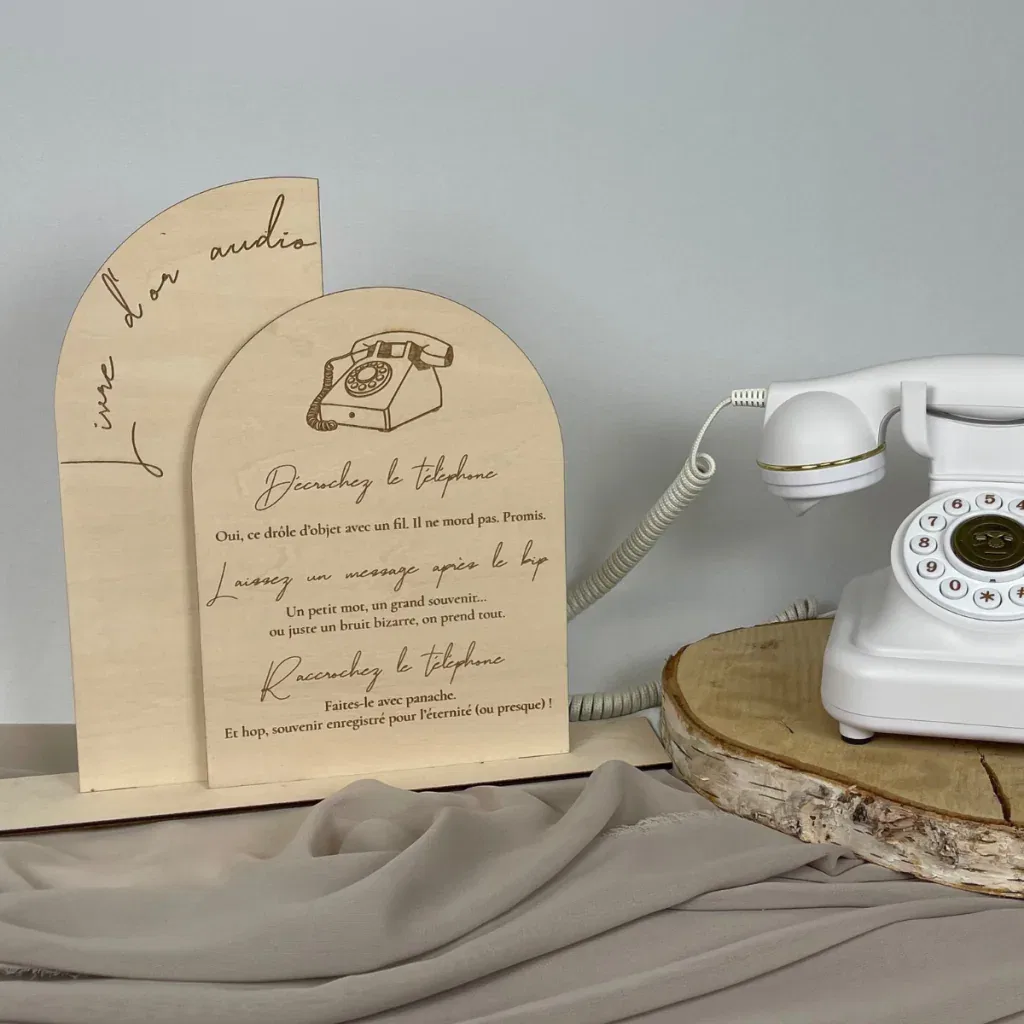 Livre d'or audio
Décrochez le téléphone
Oui, ce drôle d'objet avec un fil. Il ne mord pas. Promis.
Laissez un message après le bip
Un petit mot, un grand souvenir...
ou juste un bruit bizarre, on prend tout.
Raccrochez le téléphone
Faites-le avec panache.
Et hop, souvenir enregistré pour l'éternité (ou presque) !
6 5 4
7
8
9
0 * #